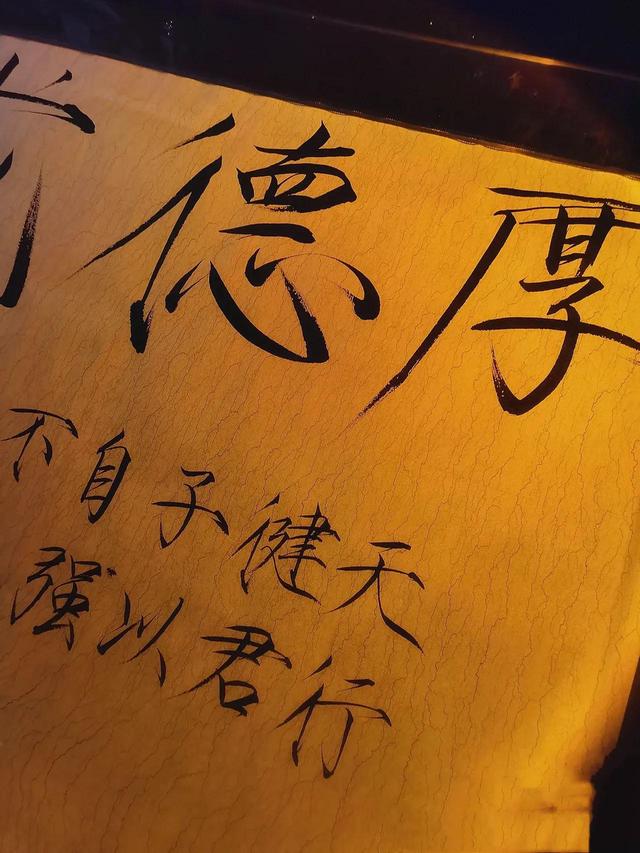 厚德
天行
健君
子以
自强
不